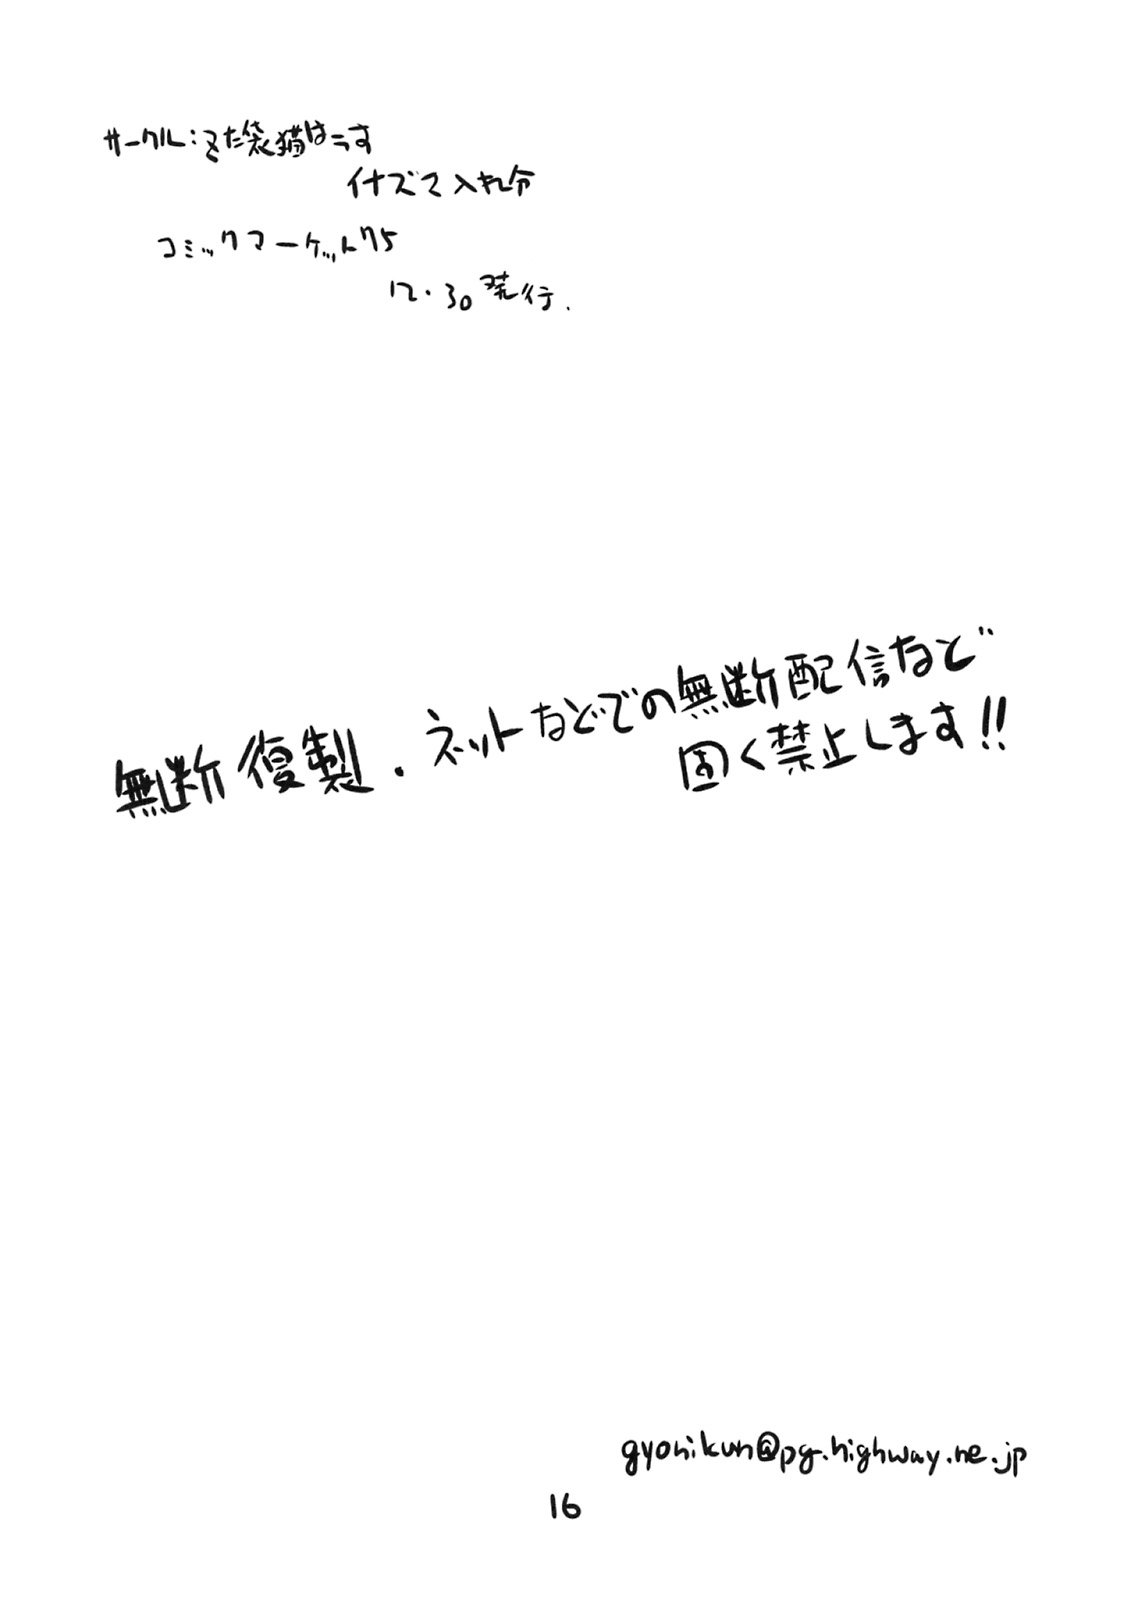 サークル：きた袋猫はうす
イナズマ入れ分
コミックマーケット75
12・30発行．
無断復製．ネットなどでの無断配信など
固く禁止します!!
gyonikun@pg.highway.ne.jp
16